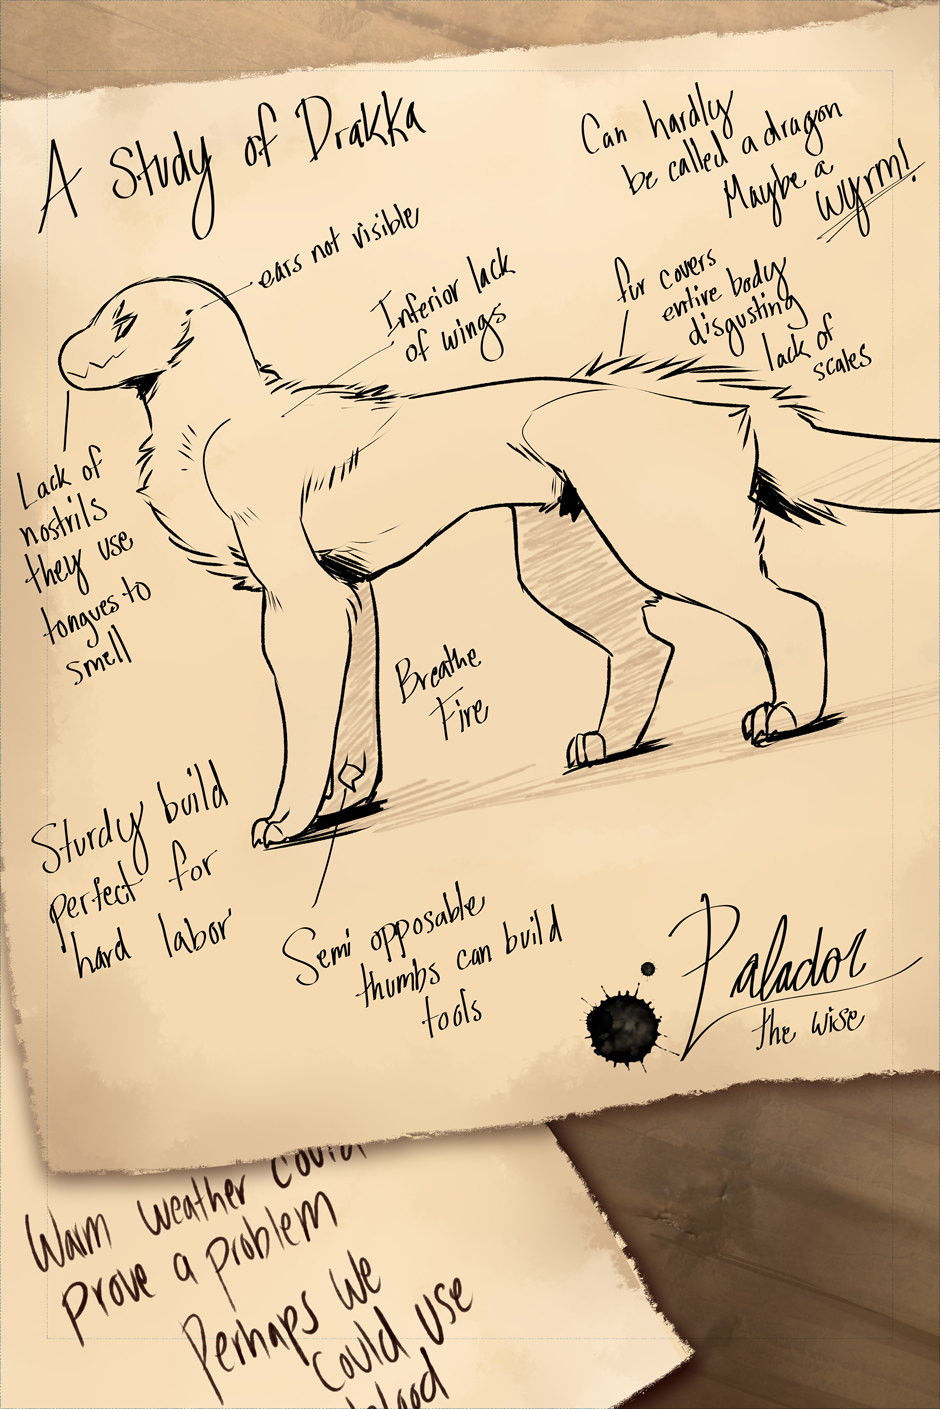 A Study of Drakka
Can hardly
be called a dragon
Maybe a
wyrm!
ears not visible
Inferior lack
of wings
fur covers
entire body
disgusting
lack of
scales
Lack of
nostrils
they use
tongues to
smell
Breathe
Fire
Sturdy build
perfect for
hard labor
Semi opposable
thumbs can build
tools
Palador
the wise
could
Warm weather
prove a problem
Perhaps we
could use
blood